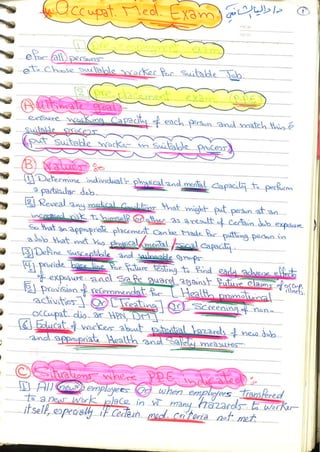 * Occupat. Med. Exam.
1 Pre-employment exam
• For all persons
• To choose suitable worker for suitable Job.
2 Pre placement exam PPE
A ultimate goal
ensure working capacity of each person and match this to
suitable process
(put suitable worker in suitable process)
B values :-
1 Determine individual's physical and mental capacity to perform
a particular Job.
2 Reveal any medical condition that might put person at an
increased risk to himself or other as a result of certain Job exposure
so that an appropriate placement can be made for putting person in
a Job that met his physical / mental / social capacity.
3 Define susceptable and vulnerable groups
4 provide base line for future testing to find early adverse effects
of exposure and safe guard against future claims of
5 provision of recommendat for (Health promotional
activities) or (treating) or Screening of non-
occupat. dis. as HPN, DM
6 Educat. of worker about potential hazards of new job
and appropriate Health and safety measures
C Situations where PPE indicated :-
1 All new employees or when employees transfered
to a new work place in w many hazards to worker
itself, especially if certain med. criteria not met.